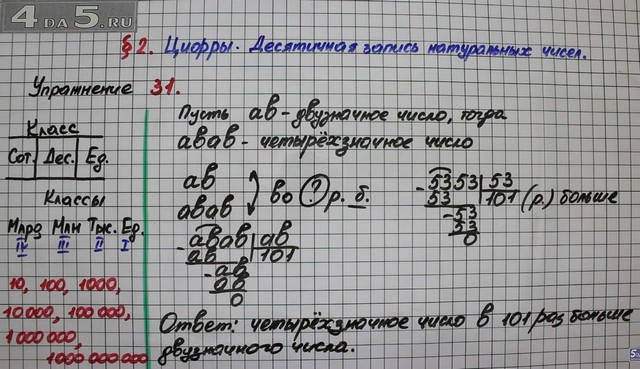 4 DA 5.RU
§2. Цифры. Десятичная запись натуральных чисел.
Упражнение 31.
Класс
Сот. Дес. Ед.
Классы
Млрд Млн Тыс. Ед.
IV III II I
10, 100, 1000,
10 000, 100 000,
1 000 000,
1000 000 000
Пусть ав - двузначное число, тогда
авав - четырёхзначное число
ав
авав
во ? р. б.
- авав | ав
ав | 101
- ав
ав
0
- 5353 | 53
53 | 101 (р.) больше
- 53
53
0
Ответ: четырёхзначное число в 101 раз больше
двузначного числа.